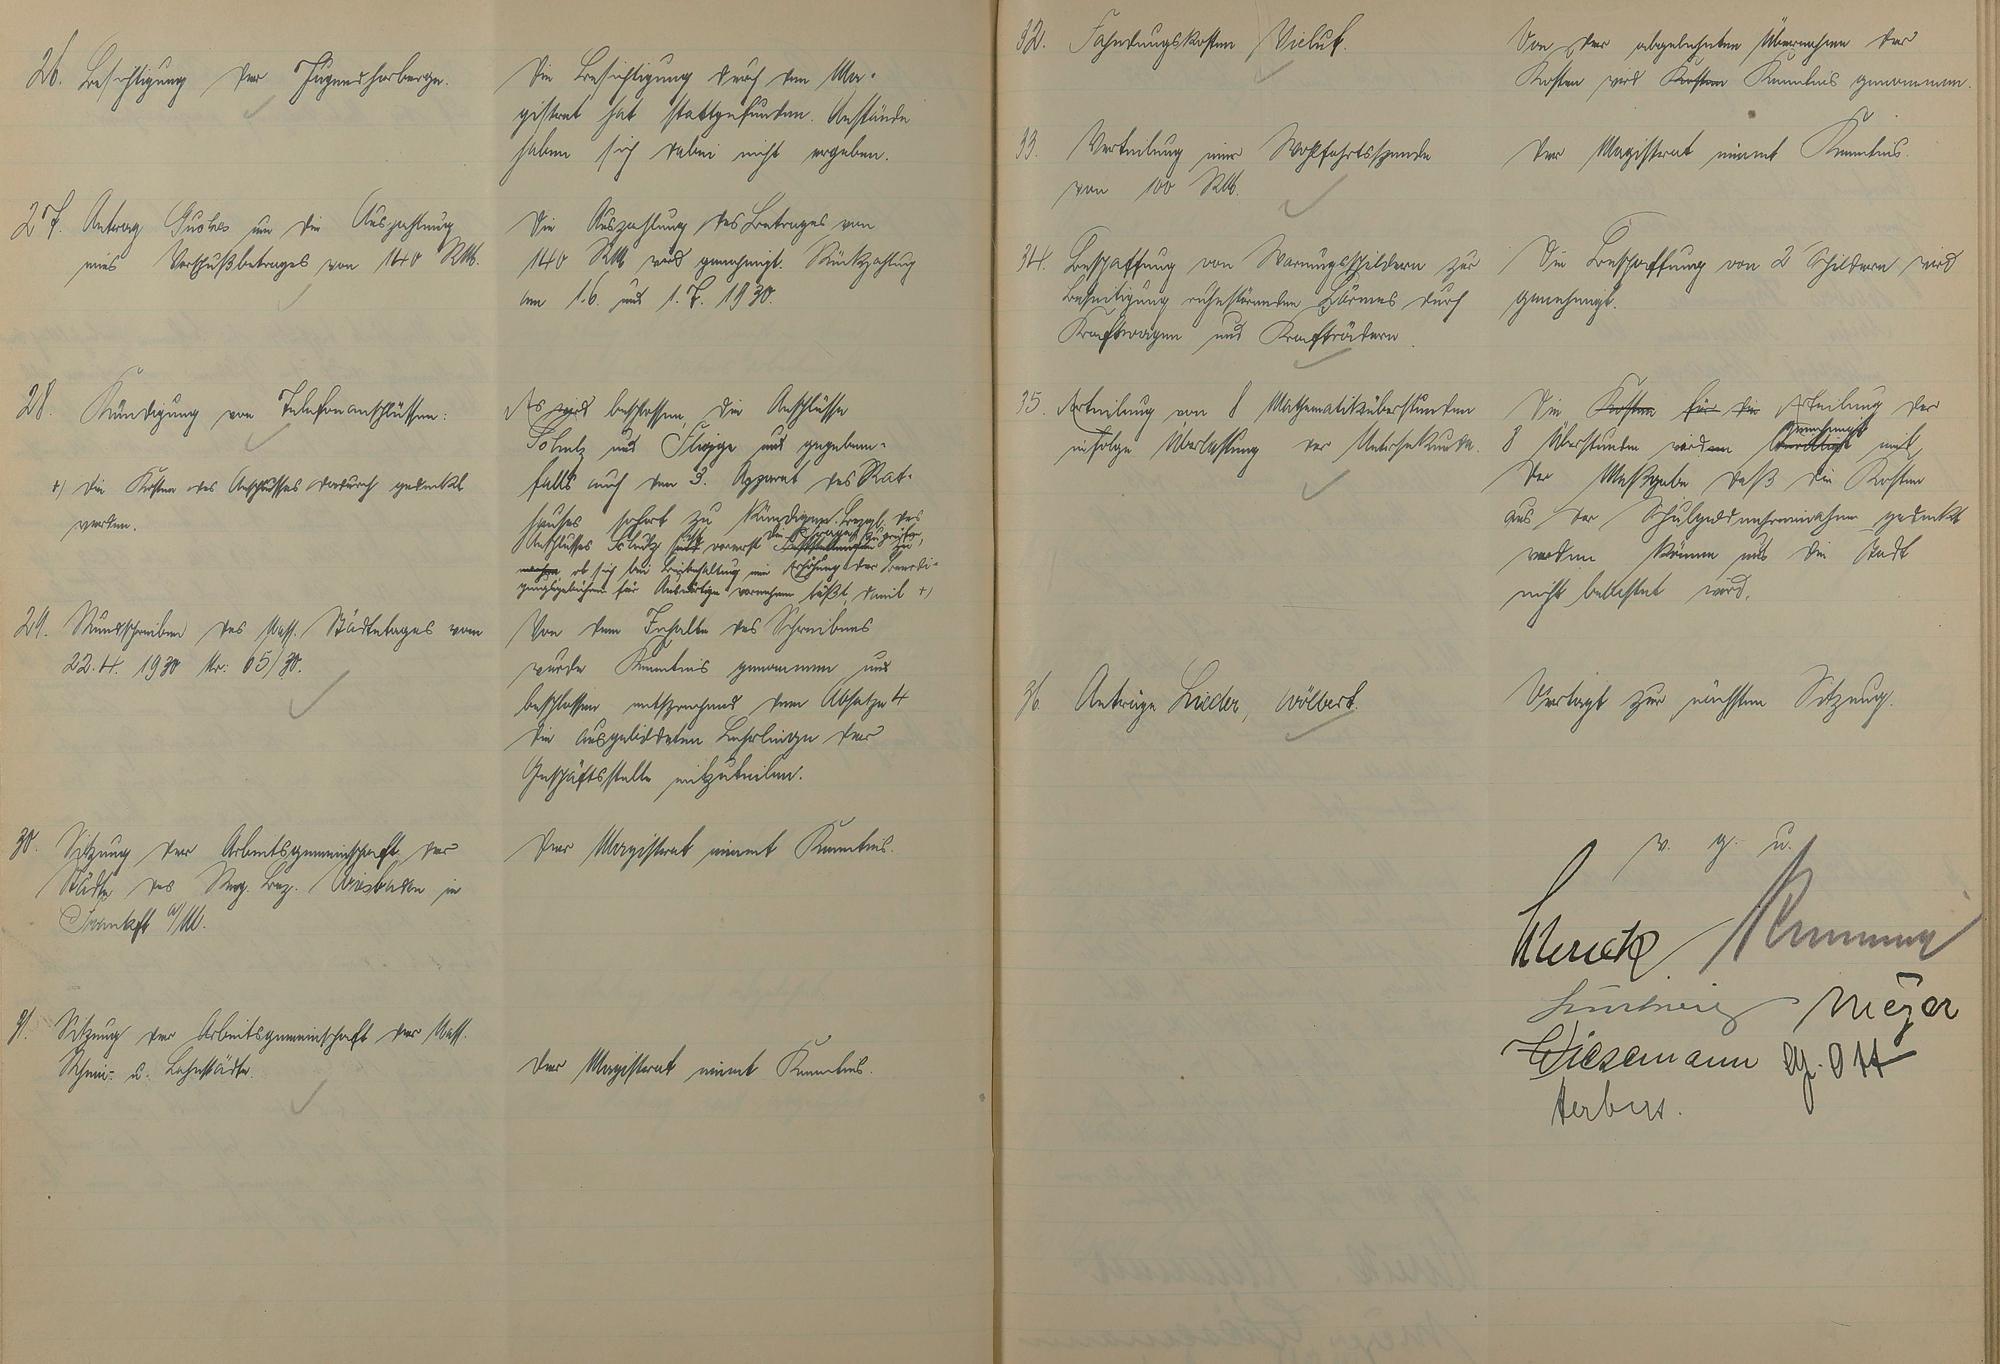 26. Besichtigung der Jugendherberge.
Die Besichtigung durch den Ma-
gistrat hat stattgefunden. Anstände
haben sich dabei nicht ergeben.
27. Antrag um die Auszahlung
eines Vorschußbetrages von 140 RM.
Die Auszahlung des Betrages von
140 RM wird genehmigt. Rückzahlung
am 1.6. und 1.7. 1930.
28. Kündigung von Telefonanschlüssen:
+) die Kosten des Anschlusses dadurch gedeckt
werden.
Es wird beschlossen, die Anschlüsse
und und gegebenen-
falls auch den 3. Apparat des Rat-
hauses sofort zu kündigen. Bezgl. des
Anschlusses ist vorerst die Frage zu prüfen,
ob sich bei Beibehaltung eine Erhöhung der
für Auswärtige vornehmen läßt, damit +)
29. Rundschreiben des Nass. Städtetages vom
22.4. 1930 Nr: 65/30.
Von dem Inhalte des Schreibens
wurde Kenntnis genommen und
beschlossen entsprechend dem Absatze 4
die ausgebildeten Lehrlinge der
Geschäftsstelle mitzuteilen.
30. Sitzung der Arbeitsgemeinschaft der
Städte des Reg. Bez. Wiesbaden in
Frankft a/M.
Der Magistrat nimmt Kenntnis.
31. Sitzung der Arbeitsgemeinschaft der Nass.
Rhein- u. Lahnstädte.
Der Magistrat nimmt Kenntnis.
32. Fahndungskosten Vielut.
Von der abgelehnten Übernahme der
Kosten wird Kosten Kenntnis genommen.
33. Verteilung einer Wohlfahrtsspende
von 100 RM.
Der Magistrat nimmt Kenntnis.
34. Beschaffung von Warnungsschildern zur
Beseitigung ruhestörenden Lärmes durch
Kraftwagen und Krafträdern.
Die Beschaffung von 2 Schildern wird
genehmigt.
35. Erteilung von 8 Mathematiküberstunden
infolge Überlastung der Untersekunda.
Die Kosten für die Erteilung der
8 Überstunden werden genehmigt mit
der Maßgabe daß die Kosten
aus der Schulgeldmehreinnahme gedeckt
werden können und die Stadt
nicht belastet wird.
36. Anträge Lieder, Wölbert.
Vertagt zur nächsten Sitzung.
v. g. u.
Meyer
Wiesemann Ott
Herber.